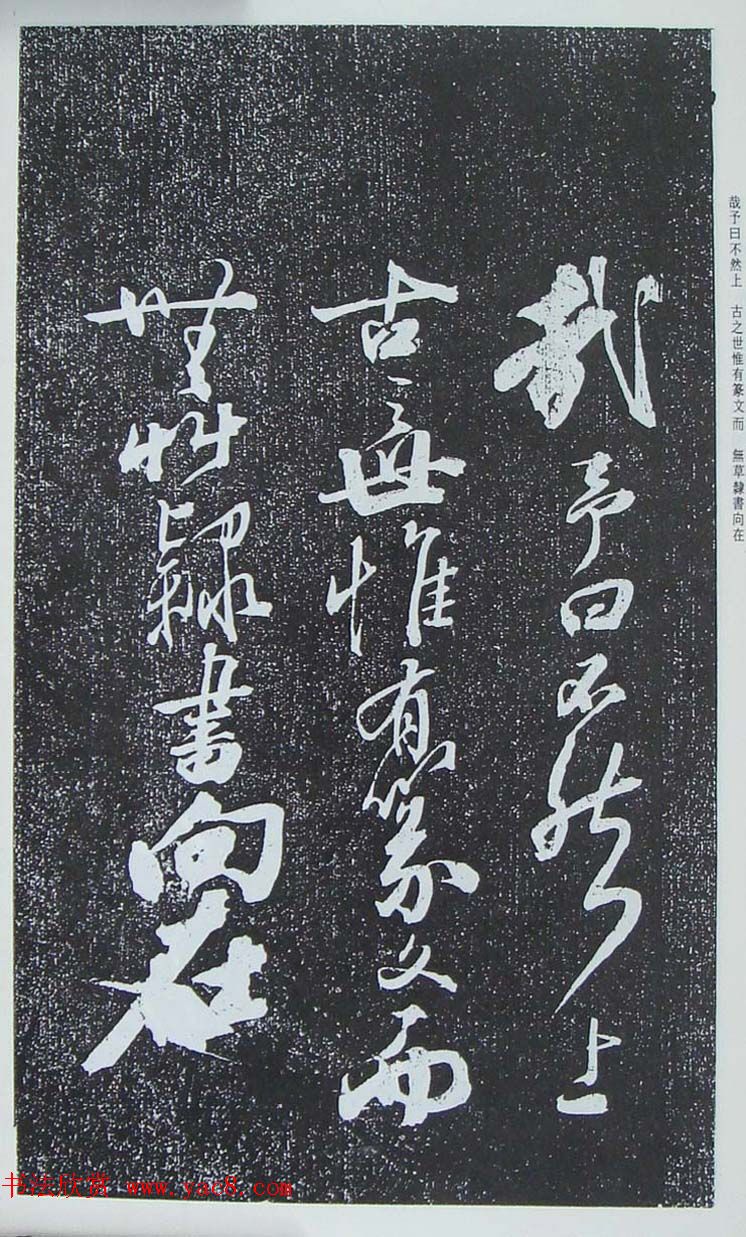 哉予曰不然上
古之世惟有篆文而
無艸隸書向在
哉予曰不然上　古之世惟有篆文而　無草隸書向在
书法欣赏 www.yac8.com